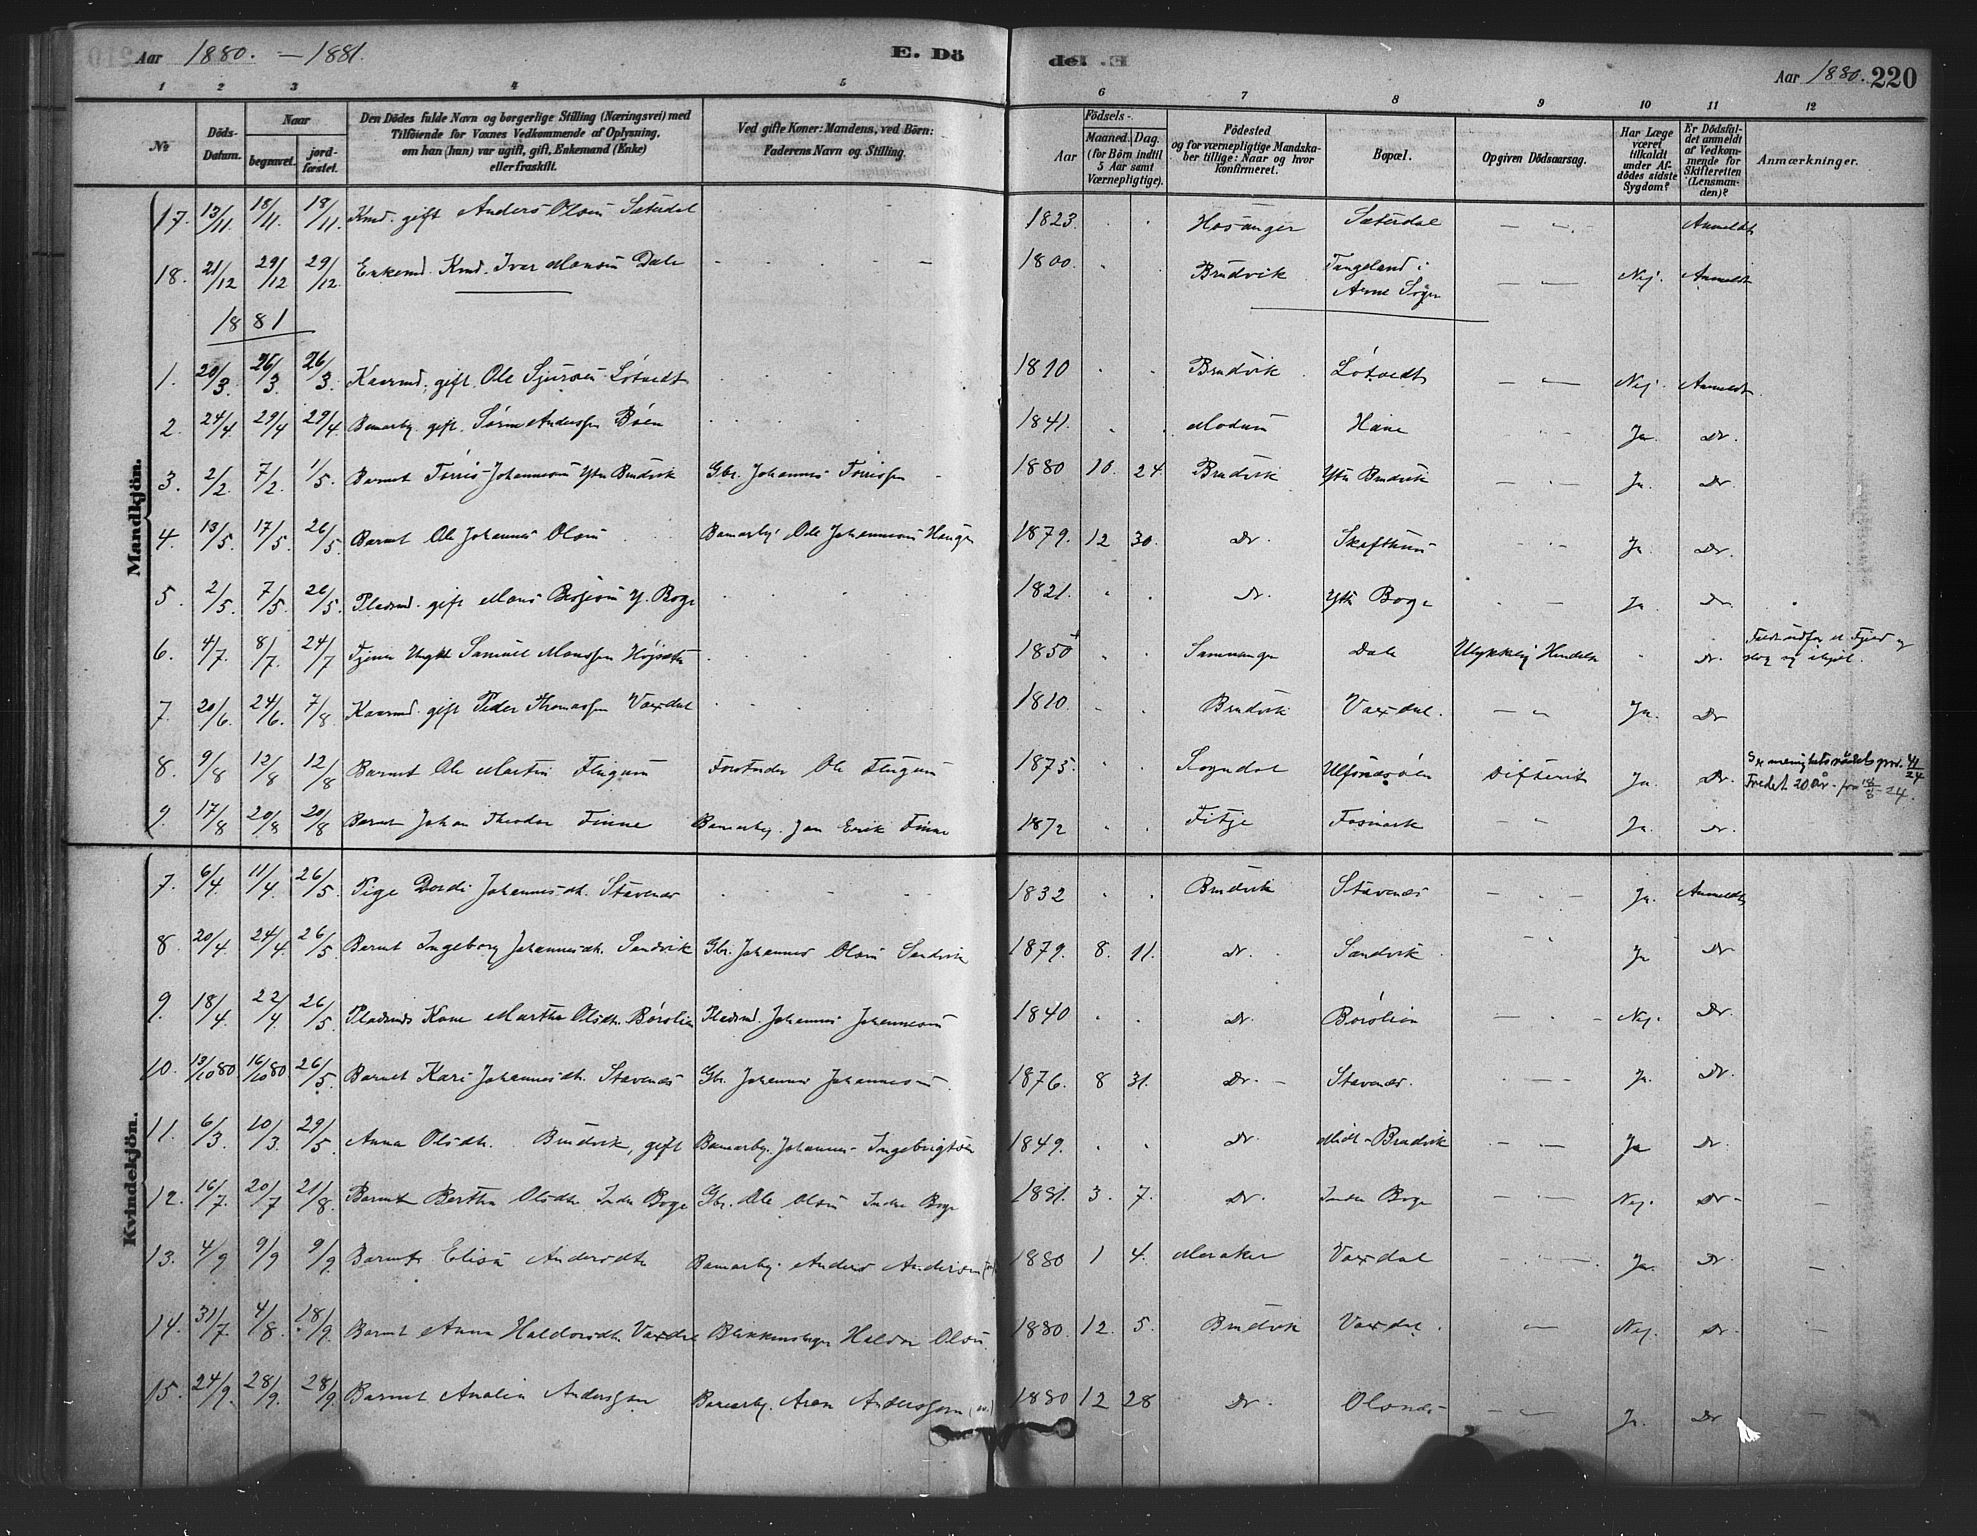 Aar 1880. — 1881.
E. Dö
del E.
Aar 1880. 220
1 2 3 4 5 6 7 8 9 10 11 12
No
Döds-Datum.
Naar
begravet.
jord-fæstet.
Den Dödes fulde Navn og borgerlige Stilling (Næringsvei) med
Tilföiende for Voxnes Vedkommende af Oplysning,
om han (hun) var ugift, gift, Enkemand (Enke)
eller fraskilt.
Ved gifte Koner: Mandens, ved Börn:
Faderens Navn og Stilling.
Födsels-
Aar
Maaned. Dag.
(for Börn indtil
5 Aar samt
Værnepligtige).
Födested
og for værnepligtige Mandska-
ber tillige: Naar og hvor
konfirmeret.
Bopæl.
Opgiven Dödsaarsag.
Har Læge
været
tilkaldt
under Af-
dödes sidste
Sygdom?
Er Dödsfal-
det anmeldt
af Vedkom-
mende for
Skifteretten
(Lensman-
den)?
Anmærkninger.
Mandkjön.
17. 13/11 18/11 18/11 Kmd. gift Anders Olsen Sæterdal 1823. Hosanger Sæterdal Anmeldt
18. 21/12 29/12 29/12 Enkemd. Kmd. Ivar Monsen Dale 1800. Brudvik Tangeland i Arne Sogn Nej. Anmeldt
1881
1. 20/3 26/3 26/3. Kaarmd. gift. Ole Sjursen Lötvedt 1810 Brudvik Lötvedt Nej. Anmeldt
2. 24/4. 29/4 29/4. Banearby. gift. Sören Anderssen Böen 1841. Modum Hane Ja. Do.
3. 2/2. 7/2. 1/5. Barnet Törris Johannesen Ytre Brudvik Gbr. Johannes Törrissen 1880 10. 24. Brudvik Ytre Brudvik Ja. Do.
4. 13/5. 17/5. 26/5. Barnet Ole Johannes Olsen Banearby. Ole Johannesen Haugen 1879. 12 30. Do. Skafthun Ja Do.
5. 2/5. 7/5. 26/5. Pladsmd. gift Mons y. Boge 1821. Do. Ytre Boge Ja Do.
6. 4/7. 8/7. 24/7 Tjener Ungkl. Samuel Monssen Höjsæter 1850 Samnanger Dale Ulykkelig Hendelse Do. Faldt udfor et Fjeld og slog sig ihjel.
7. 20/6. 24/6. 7/8. Kaarmd. gift Peder Thomassen Vaxdal 1810. Brudvik Vaxdal. Ja. Do
8. 9/8 12/8 12/8 Barnet Ole Martin Flugum Ole Flugum 1873. Sogndal Difterit Ja. Do. Se menighetsrådets prot. 41/24 Fredet 20 år fra 18/8-24.
9. 17/8 20/8 20/8 Barnet Johan Theodor Finne Banearby. Jon Erik Finne 1872 Fitje Fosmark Ja. Do.
Kvindekjön.
7. 6/4. 11/4. 26/5. Pige Dordi Johannesdt. Stavenes 1832 Brudvik Stavenes Ja. Anmeldt
8. 20/4. 24/4. 26/5. Barnet Ingeborg Johannesdt. Sandvik Gbr. Johannes Olsen Sandvik 1879. 8. 11. Do. Sandvik Ja Do
9. 18/4. 22/4. 26/5. Pladsmds Kone Martha Olsdt. Börslien Pladsmd. Johannes Johannesen 1840 Do. Börslien Nej. Do.
10. 13/10 80 16/10 80 26/5. Barnet Kari Johannesdt. Stavenes Gbr. Johannes Johannesen 1876. 8 31. Do. Stavenes. Ja. Do.
11. 6/3. 10/3. 29/5. Anna Olsdt. Brudvik, gift Banearby. Johannes Ingebrigtsen 1849. Do. Midt-Brudvik Ja Do.
12. 16/7. 20/7 21/8. Barnet Bertha Olsdt. Indre Boge Gbr. Ole Olsen Indre Boge 1881. 3. 7. Do. Indre Boge Nej. Do.
13. 4/9 9/9 9/9. Barnet Elise Andersdt. Banearby. Anders Andersen 1880 1 4. Meraker Vaxdal Ja. Do.
14. 31/7 4/8. 18/9. Barnet Anna Haldorsdt. Vaxdal Blikkenslager Haldor Olsen 1880. 12. 5. Brudvik Vaxdal. Nej. Do.
15. 24/9. 28/9. 28/9. Barnet Analia Anderssen Banearby. Aron Anderssen (sv.) 1880 12 28 Do. Olsnes Ja. Do